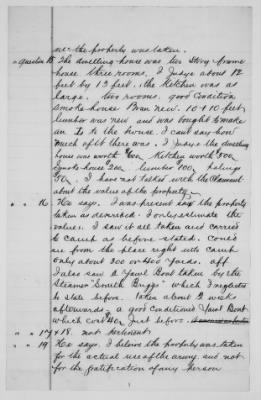 ner the property was taken.
" Question 15 The dwelling house was two story frame
house three rooms, I Judge about 12
feet by 13 feet, the Kitchen was as
large. two rooms. good Condition
Smoke house Bran new. 10 x 10 feet
lumber was new and was bought to make
an L to the house. I cant say how
much of it there was. I Judge the dwelling
house was worth $600, Kitchen worth $300,
Smoke house $200, lumber $100, palings
$50. I have not talked with the Claimant
about the value of the property.
" " 16 He says. I was present say the property
taken as described. I only estimate the
values. I saw it all taken and carried
to Camp as before stated. Could
see from the place right into Camp
only about 300 or 400 yards. off
I also saw a Yawl Boat taken by the
Steamer "Smith Briggs" which I neglected
to state before. taken about 2 weeks
afterwards, a good Conditioned Yawl Boat
which cost $40 Just before.
" " 17 & 18. not pertinent
" " 19 He says. I believe the property was taken
for the actual use of the army, and not
for the gratification of any person